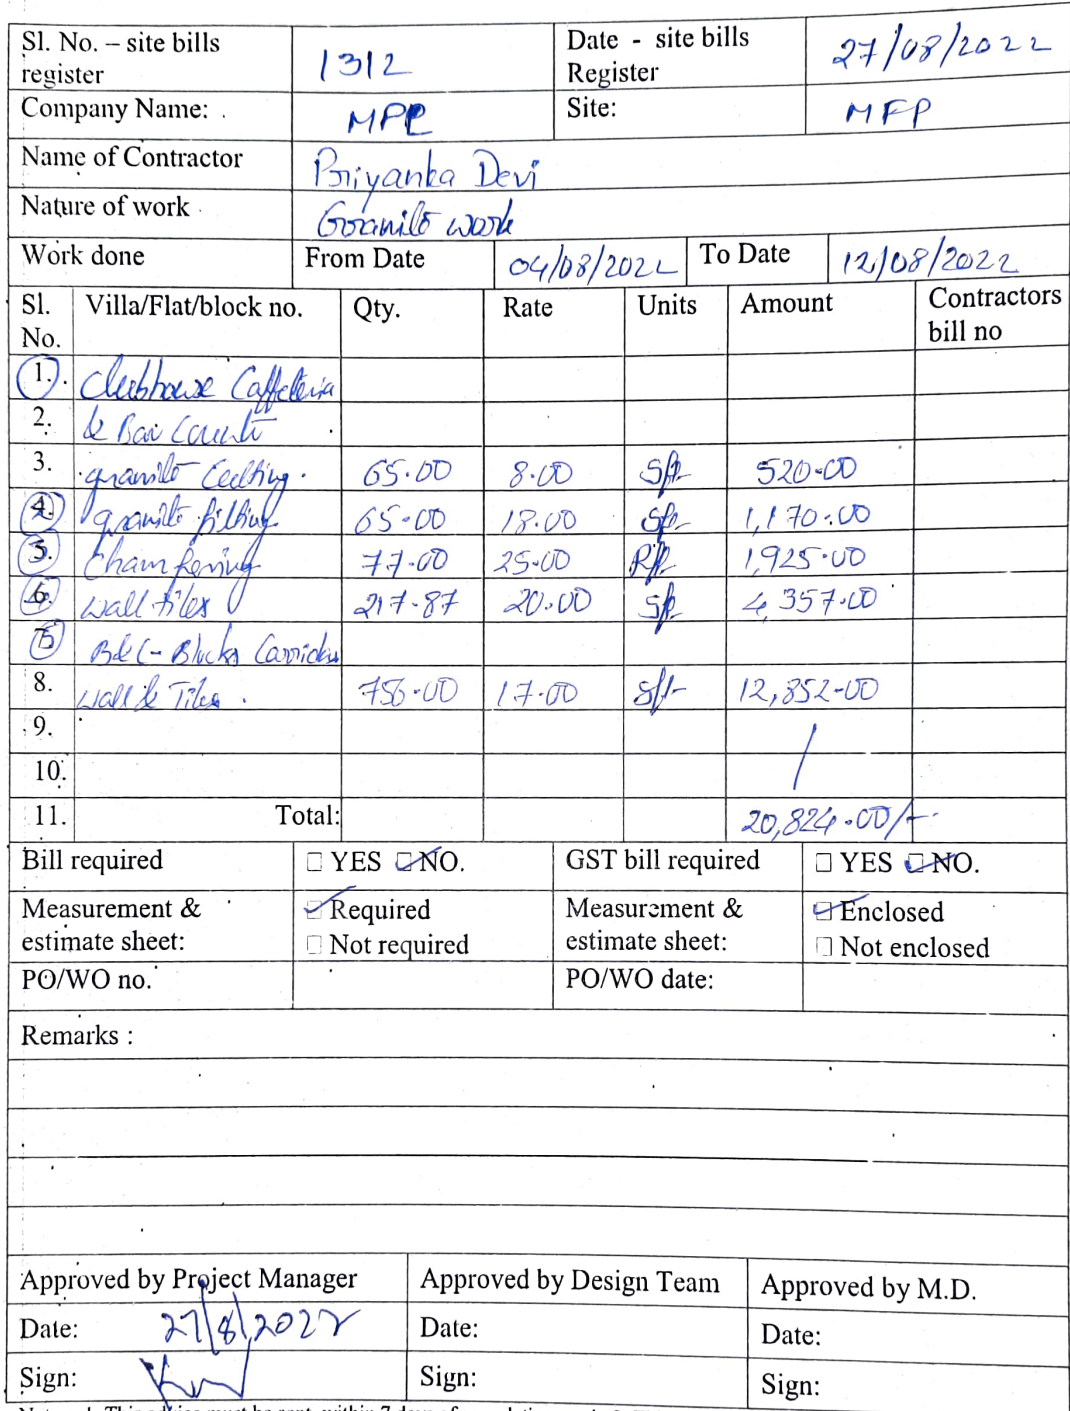 Sl. No. – site bills register 1312 Date - site bills Register 27/08/2022
Company Name: MPL Site: MFP
Name of Contractor Priyanka Devi
Nature of work Granite work
Work done From Date 04/08/2022 To Date 12/08/2022
Sl. No. Villa/Flat/block no. Qty. Rate Units Amount Contractors bill no
1. Clubhouse Caffeteria
2. & Bar Counter
3. granite Cutting. 65.00 8.00 Sft 520.00
4. granite fitting 65.00 18.00 Sft 1,170.00
5. Chamfering 77.00 25.00 Rft 1,925.00
6. wall tiles 217.87 20.00 Sft 4,357.00
B & C - Blocks Corridor
8. wall & Tiles. 756.00 17.00 Sft 12,852-00
9.
10.
11. Total: 20,824.00/-
Bill required YES NO. GST bill required YES NO.
Measurement & estimate sheet: Required Not required Measurement & estimate sheet: Enclosed Not enclosed
PO/WO no. PO/WO date:
Remarks :
Approved by Project Manager Approved by Design Team Approved by M.D.
Date: 27/8/2022 Date: Date:
Sign: Sign: Sign: